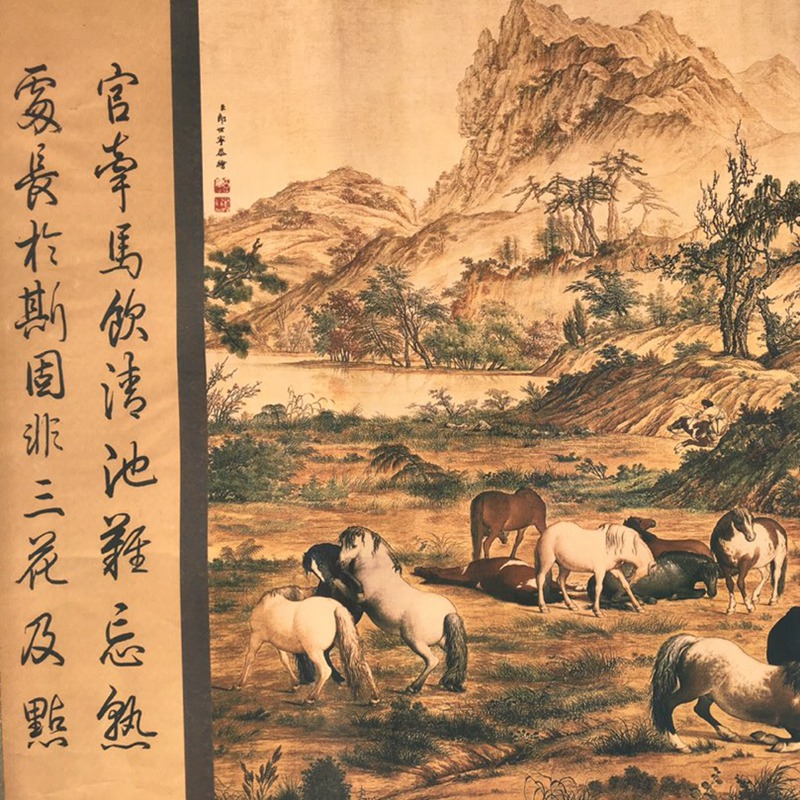 官牽馬飲清池難忘熟
處長於斯固非三花及點
臣郎世寧恭繪